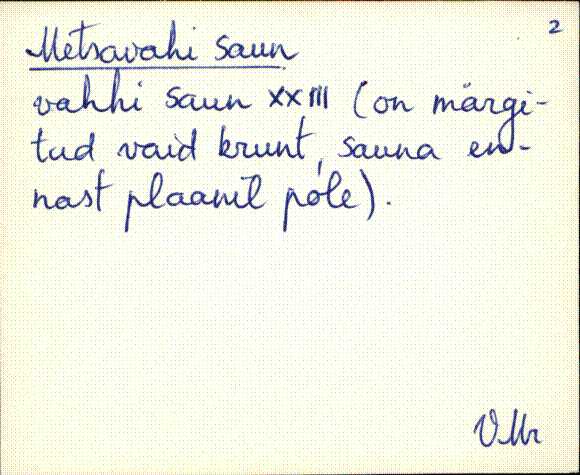 2
Metsavahi saun
vahhi saun XXIII (on märgi-
tud vaid krunt, sauna en-
nast plaanil põle).
VMr